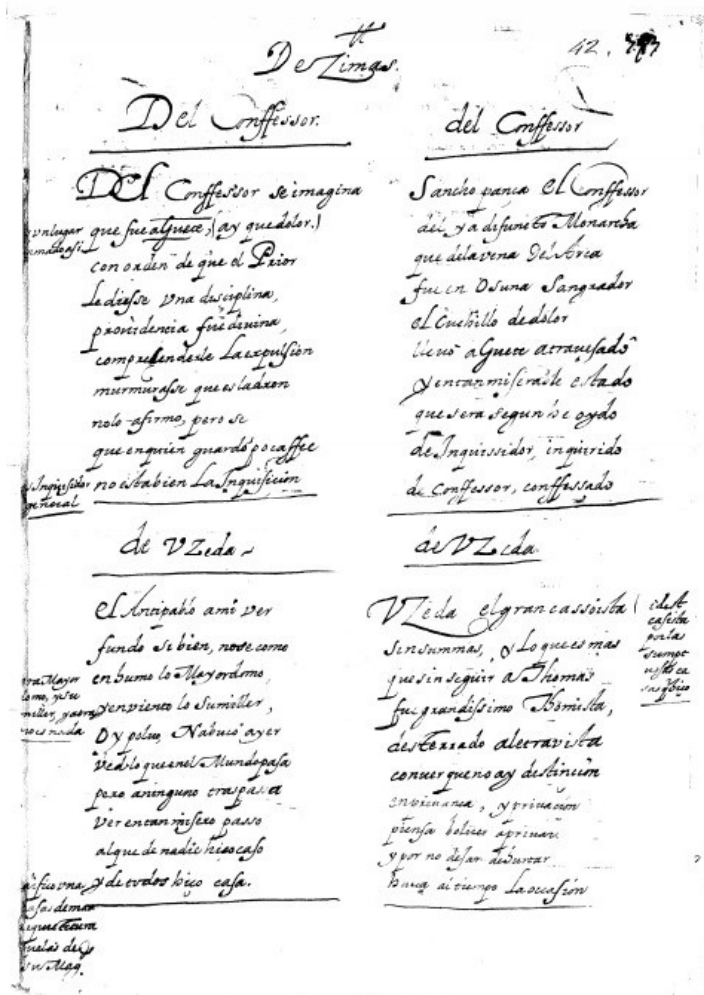 Dezimas.
42.
Del Conffessor.
DEl Conffessor se imagina
que fue a Guete, (ay que dolor.)
con orden de que el Prior
Le diesse vna disciplina,
prouidencia fue diuina,
comprehenderle La expulsion
murmurasse que es ladron
nolo afirmo, pero se
que en quien guardó poca ffee
no esta bien La Inquisicion
vn lugar
llamado asi
Inquisidor
general
de VZeda
el Antipablo ami ver
fundo si bien, no se como
en humo lo Mayordomo,
y en viento lo Sumiller,
Oy poluo, Nabuco ayer
Ved lo que en el Mundo pasa
pero aninguno traspasa
Ver en tan misero passo
al que de nadie hiço caso
y de todos hiço casa.
Mayor
domo, y su
miller, y aora
no es nada
casas de
del Conffessor
Sancho pança El Conffessor
del ya difuncto Monarcha
que de la vena Del Arca
fue en Osuna Sangrador
el Cuchillo de dolor
lleuó a Guete atrauesado
y en tan miserable estado
que sera segun he oydo
de Inquissidor, inquirido
de Conffessor, conffessado
de VZeda.
VZeda el gran cassoista
sin summas, y Lo que es mas
que sin seguir a Thomas
fue grandissimo Thomista,
desterrado a letra vista
con ver que no ay destincion
en priuança, y priuacion
piensa bolver a priuar
y por no dejar de hurtar
hurta al tiempo La occasión
idest
casista
por las
sumptuosas ca
sas q hiço